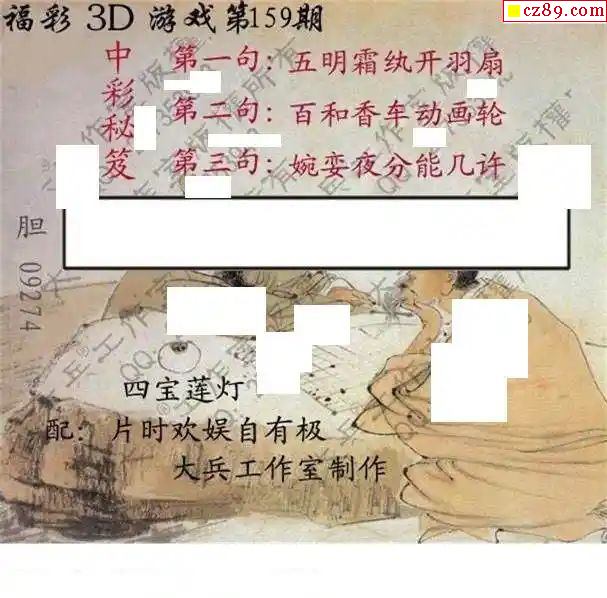 福彩 3D 游戏第159期
cz89.com
中彩秘笈
第一句：五明霜纨开羽扇
第二句：百和香车动画轮
第三句：婉娈夜分能几许
胆 09274
四宝莲灯
配：片时欢娱自有极
大兵工作室制作